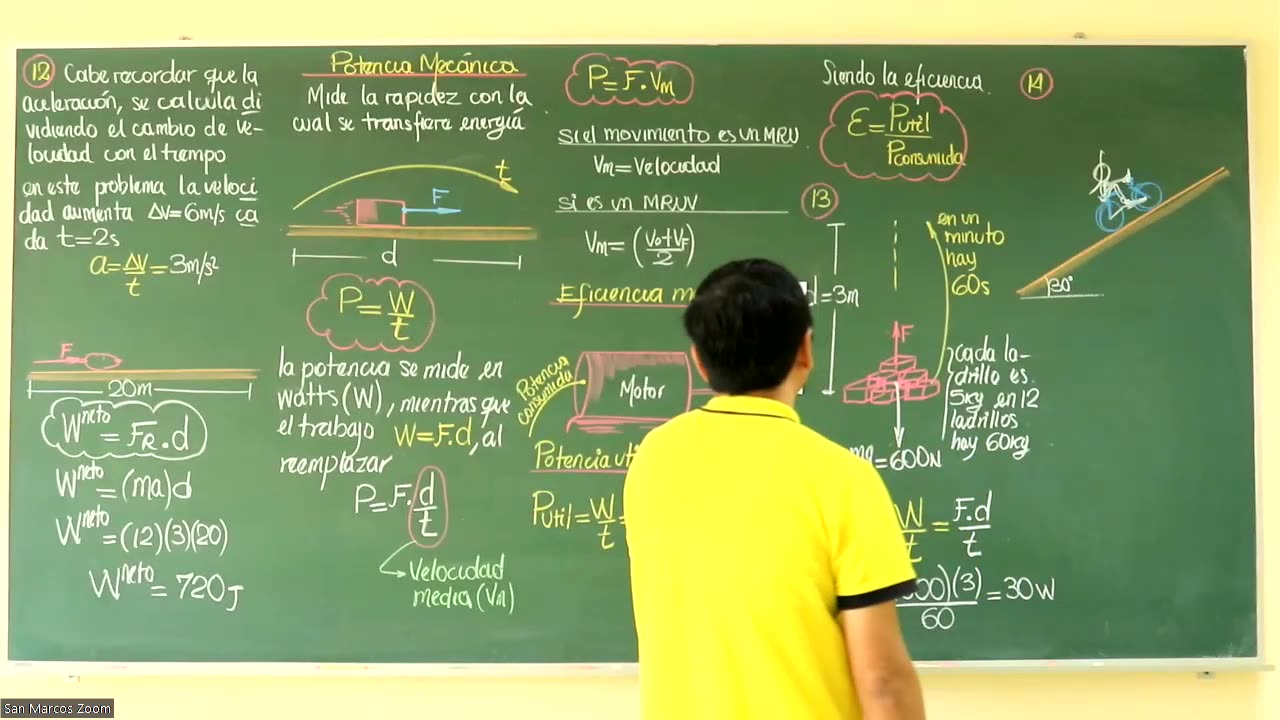 12 Cabe recordar que la
aceleración, se calcula di
vidiendo el cambio de ve-
locidad con el tiempo
en este problema la veloci
dad aumenta Δv=6m/s ca
da t=2s
a=Δv/t=3m/s²
F
20m
Wneto=FR.d
Wneto=(ma)d
Wneto=(12)(3)(20)
Wneto=720J
Potencia Mecánica
Mide la rapidez con la
cual se transfiere energía
t
F
d
P=W/t
la potencia se mide en
watts(W), mientras que
el trabajo W=F.d, al
reemplazar
P=F.d/t
Velocidad
media(Vm)
P=F.Vm
si el movimiento es un MRU
Vm=Velocidad
si es un MRUV
Vm=(Vo+VF/2)
Eficiencia
Potencia
consumida
Motor
Potencia
Putil=W/t=
Siendo la eficiencia
Ɛ=Putil/Pconsumida
13
d=3m
F
en un
minuto
hay
60s
cada la-
drillo es
5kg en 12
ladrillos
hay 60kg
=600N
W/t=F.d/t
(3)/60=30W
14
30°
San Marcos Zoom